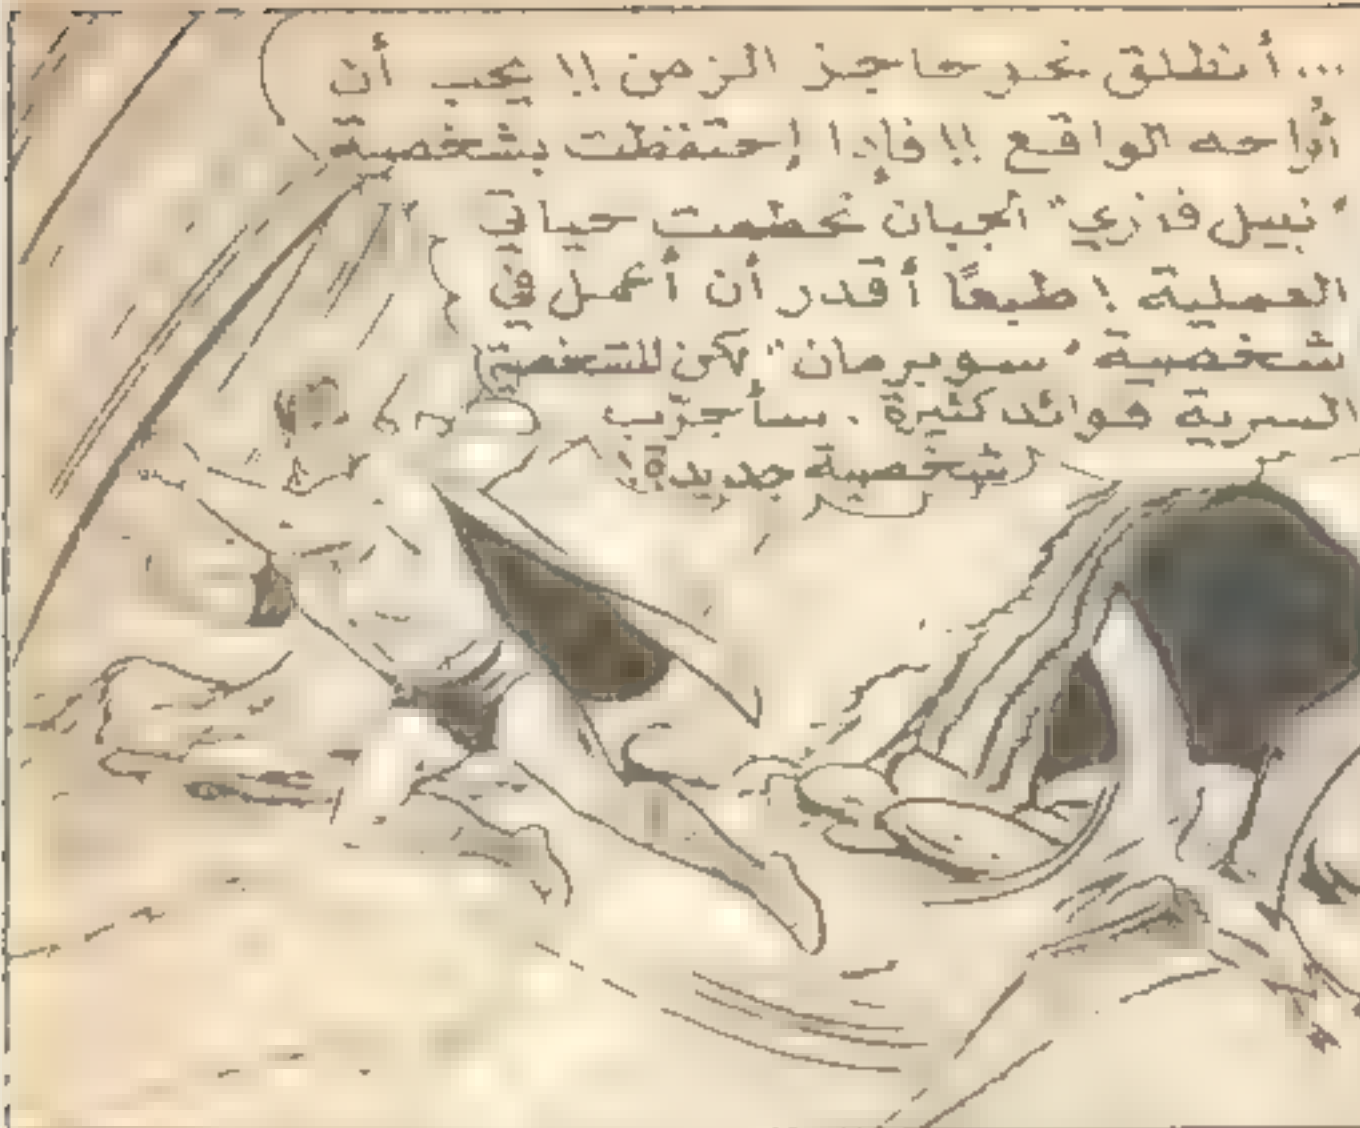 ... أنطلق نحو حاجز الزمن !! يجب أن
أواجه الواقع !! فإذا إحتفظت بشخصية
"نبيل فوزي" الجبان تحطمت حياتي
العملية ! طبعًا أقدر أن أعمل في
شخصية "سوبرمان" لكن للشخصية
السرية فوائد كثيرة . سأجرّب
شخصية جديدة !